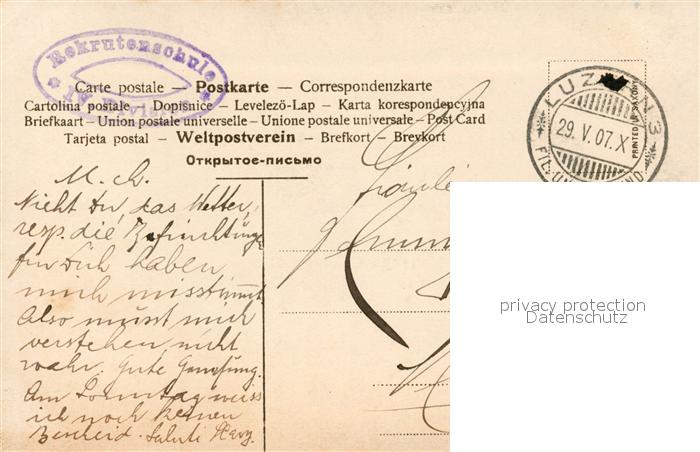 Rekrutenschule
Carte postale — Postkarte — Correspondenzkarte
Cartolina postale — Dopisnice — Levelező-Lap — Karta korespondencyjna
Briefkaart — Union postale universelle — Unione postale universale — Post Card
Tarjeta postal — Weltpostverein — Brefkort — Brevkort
Открытое-письмо
PRINTED IN SAXONY
LUZERN 3
29. V. 07. X
FIL.
M. L.
Nicht du, das Wetter,
resp. die Befürchtung
für Dich haben
mich misstimmt
Also musst mich
verstehen, nicht
wahr. Gute
Am Sonntag weiss
ich noch keinen
Bescheid. Saluti
Fräulein
privacy protection
Datenschutz